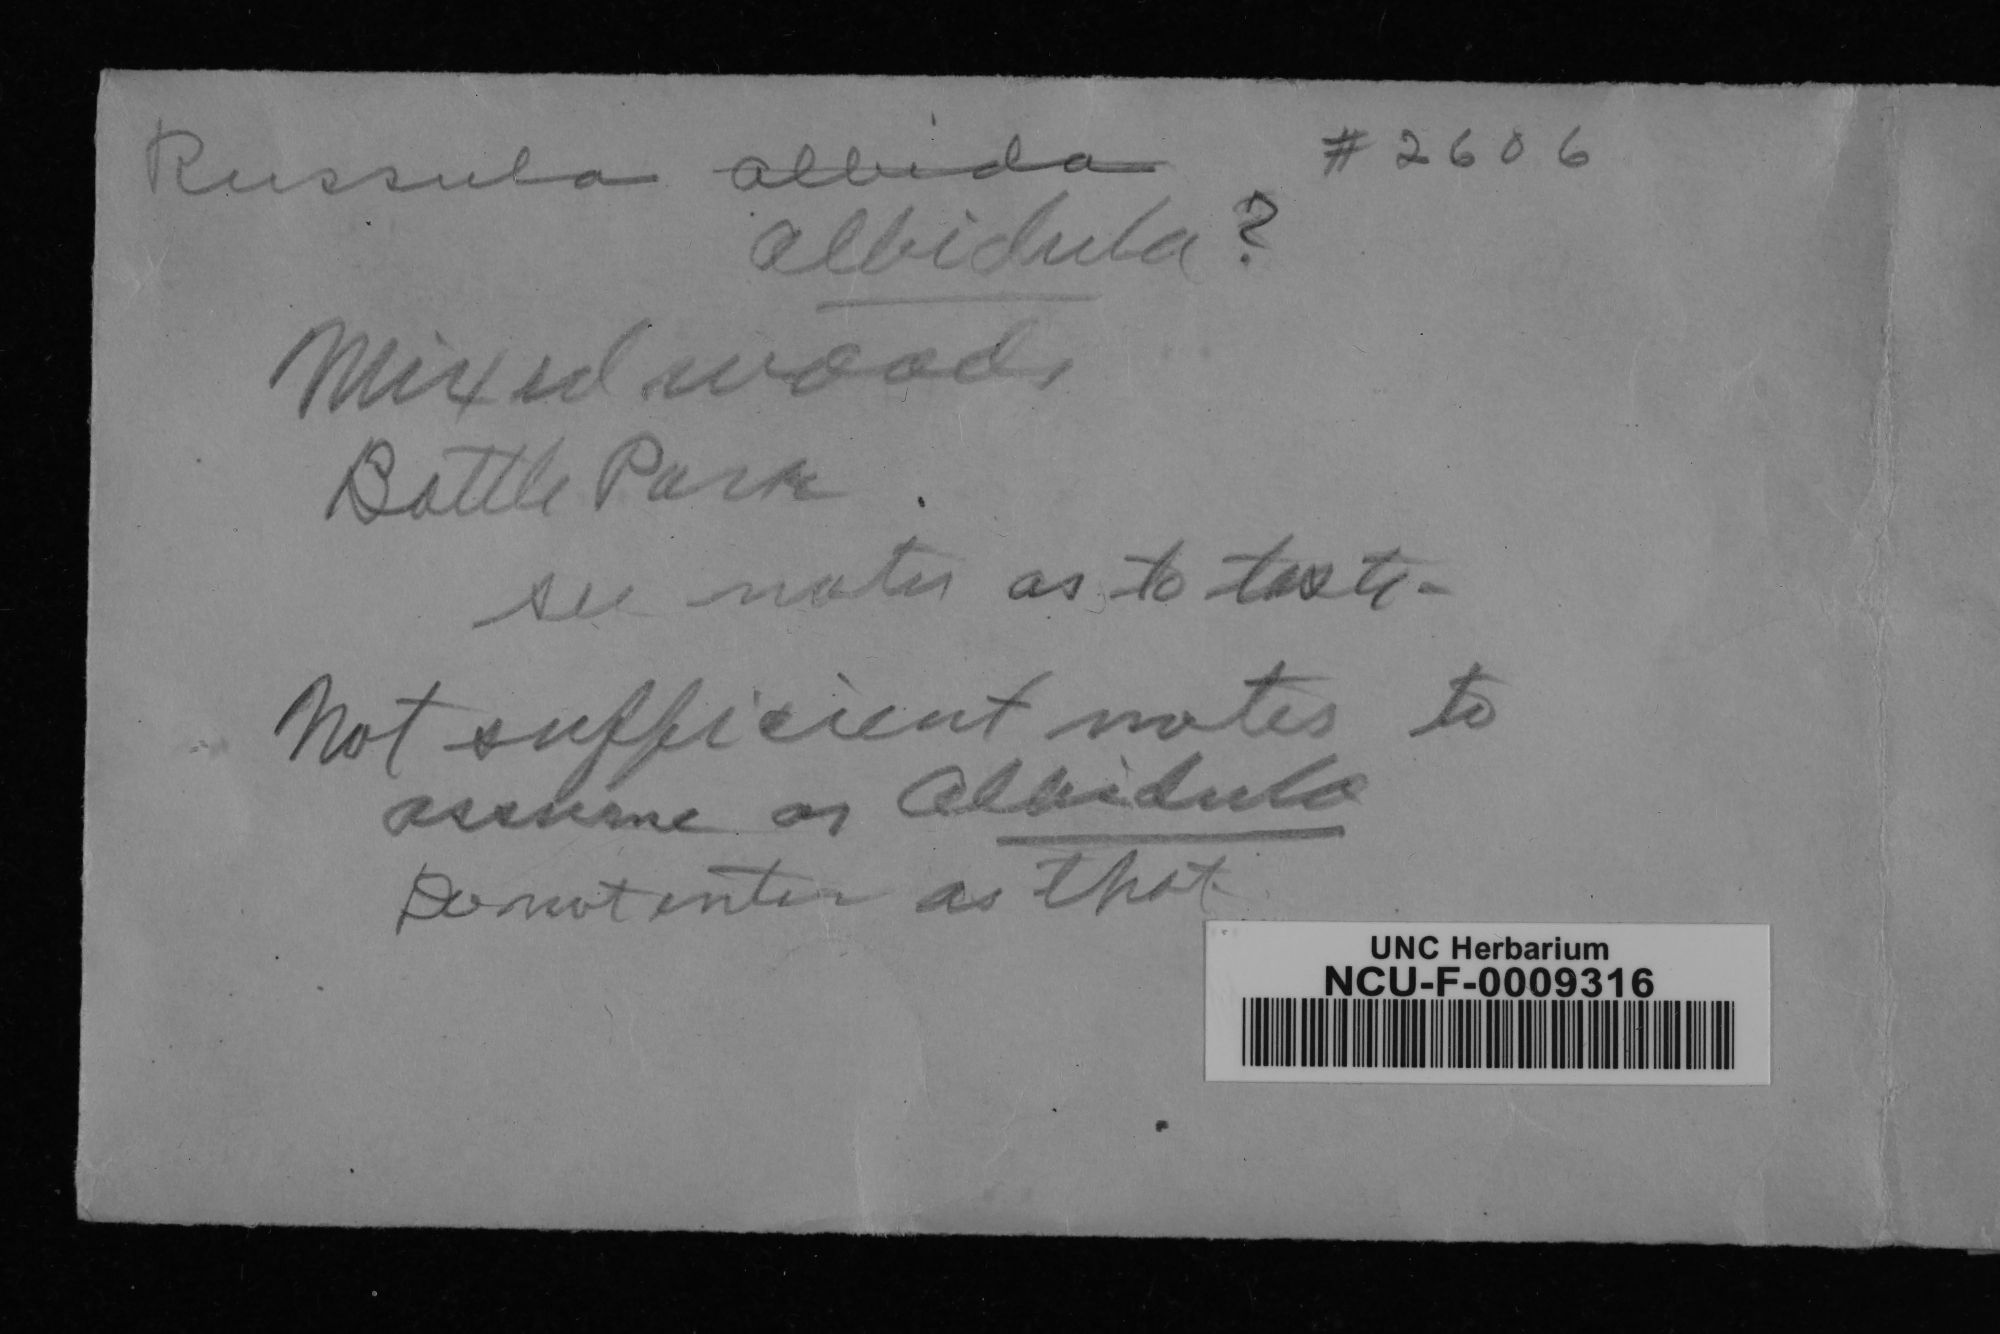 Russula albida #2606
albidula?
Mixed woods
Battle Park
see notes as to taste-
Not sufficient notes to
assume as albidula
Do not enter as that
UNC Herbarium
NCU-F-0009316